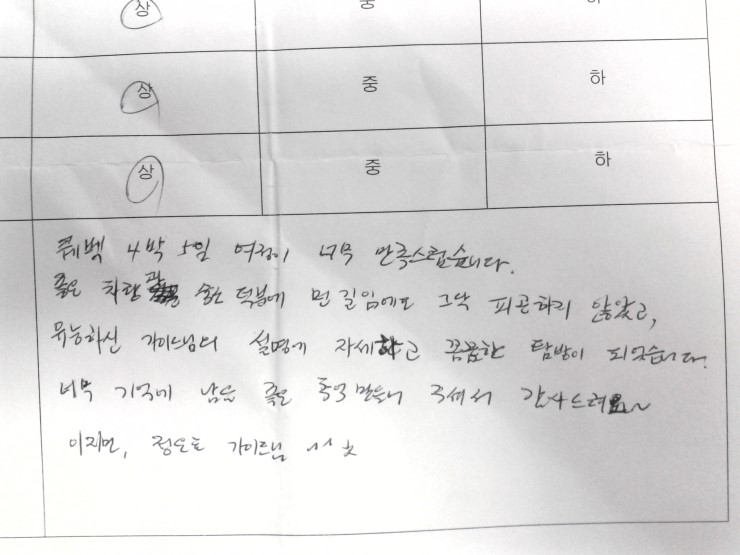 상 중 하
상 중 하
상 중 하
퀘벡 4박 5일 여정이 너무 만족스럽습니다.
좋은 차량 덕분에 먼 길임에도 그닥 피곤하지 않았고,
유능하신 가이드님의 설명에 자세하고 꼼꼼한 탐방이 되었습니다.
너무 기억에 남을 좋은 추억 만들어 주셔서 감사드려요~
이지언, 가이드님 ^^